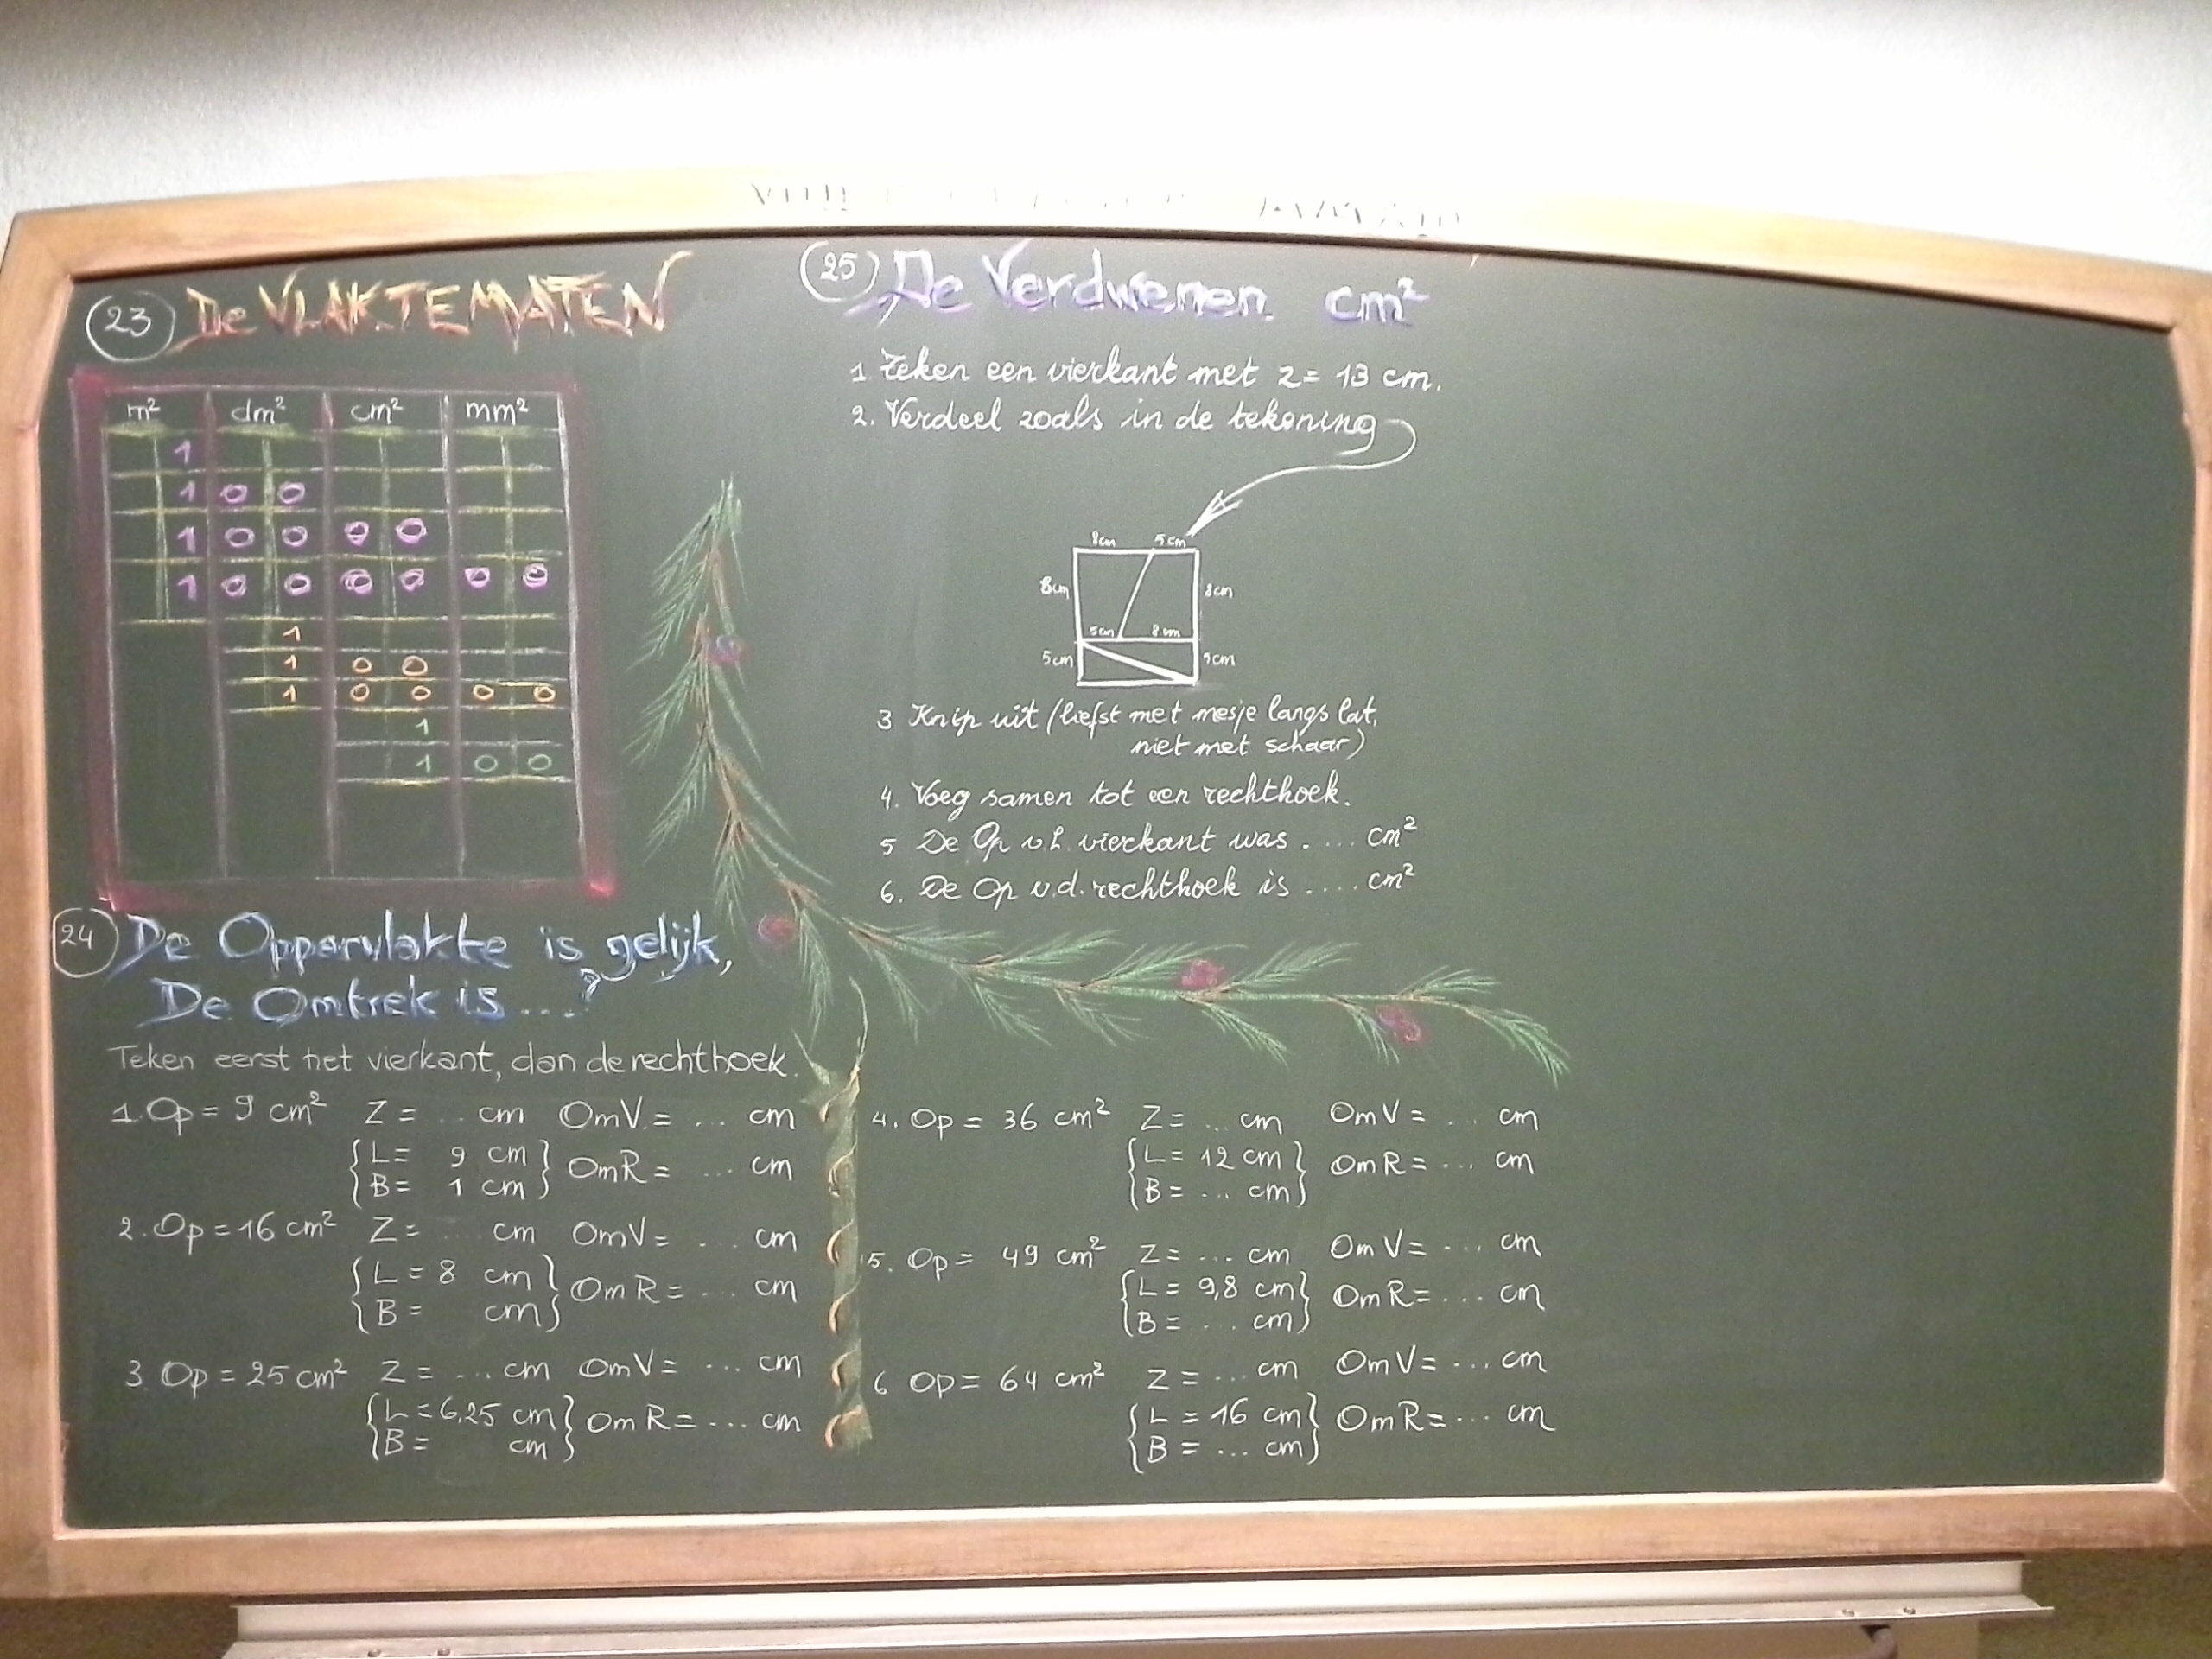 23 De VLAKTEMATEN
m² dm² cm² mm²
1
1 0 0
1 0 0 0 0
1 0 0 0 0 0 0
1
1 0 0
1 0 0 0 0
1
1 0 0
24 De Oppervlakte is gelijk,
De Omtrek is ...?
Teken eerst het vierkant, dan de rechthoek.
1. Op = 9 cm² Z = ... cm OmV. = ... cm
{L = 9 cm
B = 1 cm} OmR = ... cm
2. Op = 16 cm² Z = ... cm OmV = ... cm
{L = 8 cm
B = cm} OmR = ... cm
3. Op = 25 cm² Z = ... cm OmV = ... cm
{L = 6,25 cm
B = cm} OmR = ... cm
25 De Verdwenen cm²
1. Teken een vierkant met z = 13 cm.
2. Verdeel zoals in de tekening
8cm 5cm
8cm 8cm
5cm 8cm
5cm 5cm
3 Knip uit (liefst met mesje langs lat,
niet met schaar)
4. Voeg samen tot een rechthoek.
5 De Op v.h. vierkant was .... cm²
6. De Op v.d. rechthoek is .... cm²
4. Op = 36 cm² Z = ... cm OmV = ... cm
{L = 12 cm
B = ... cm} OmR = ... cm
5. Op = 49 cm² Z = ... cm OmV = ... cm
{L = 9,8 cm
B = ... cm} OmR = ... cm
6 Op = 64 cm² Z = ... cm OmV = ... cm
{L = 16 cm
B = ... cm} OmR = ... cm